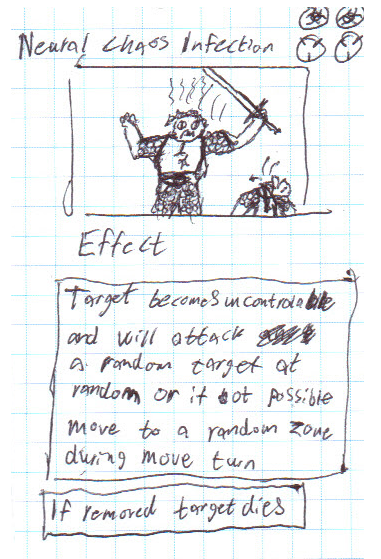 Neural Chaos Infection
Effect
Target becomes uncontrolable
and will attack
a random target at
random or if not possible
move to a random zone
during move turn
If removed target dies